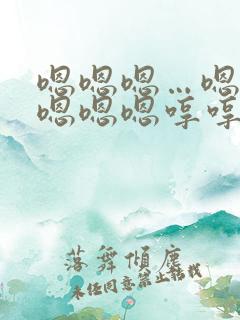 嗯嗯嗯…嗯
嗯嗯嗯哼哼
落舞倾尘
未经同意禁止转载